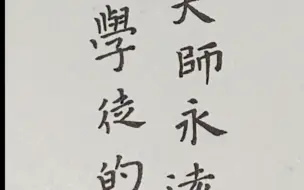 大師永遠
學徒的